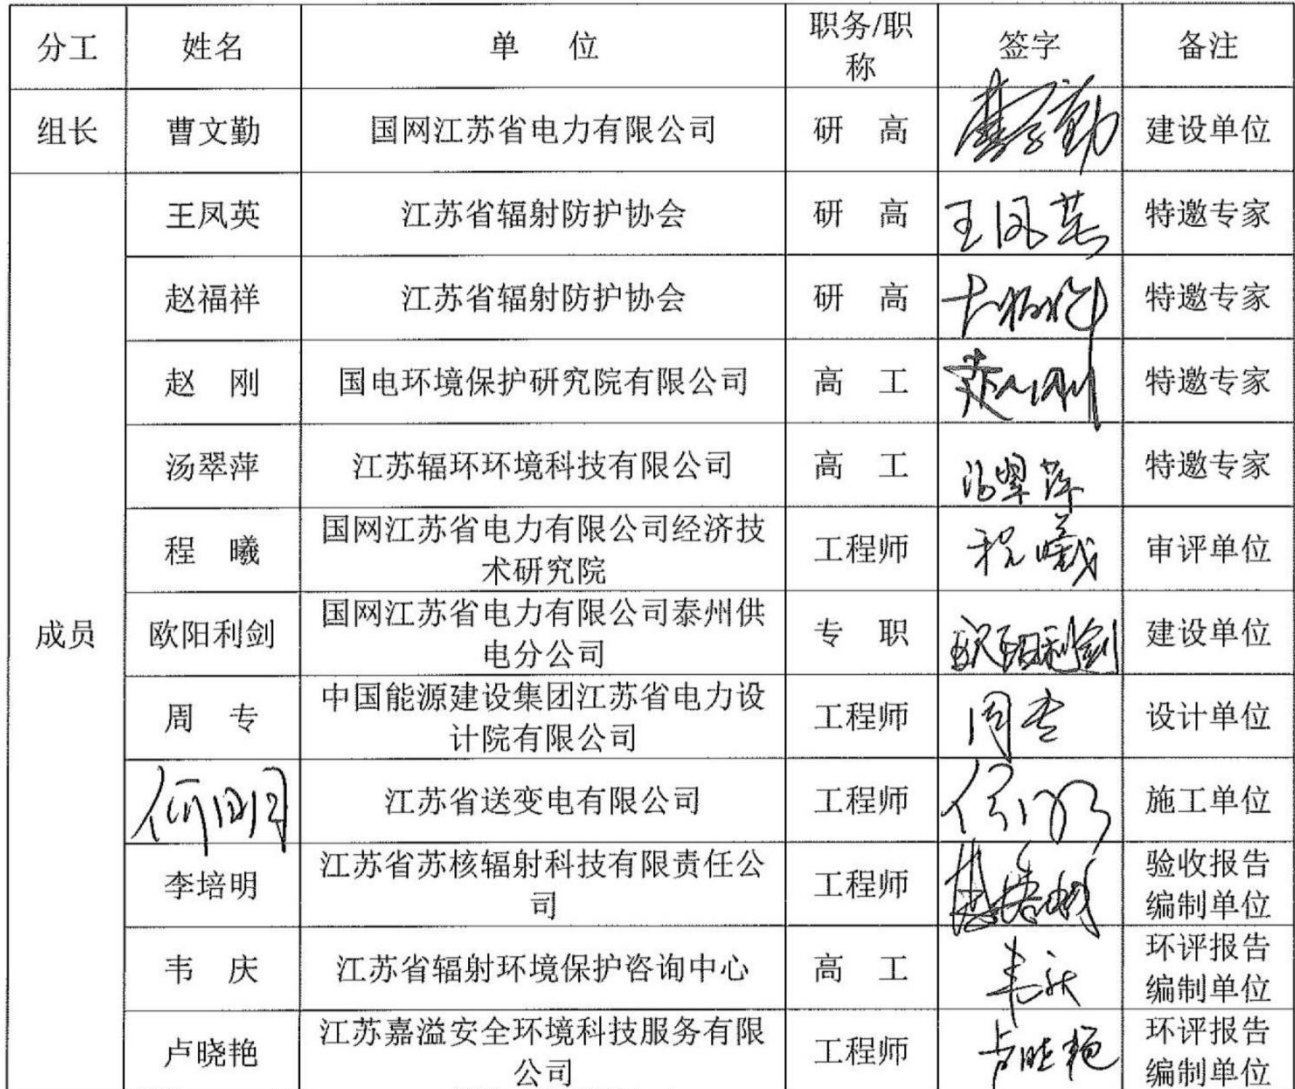 分工 姓名 单 位 职务/职称 签字 备注
组长 曹文勤 国网江苏省电力有限公司 研 高 曹文勤 建设单位
成员
王凤英 江苏省辐射防护协会 研 高 王凤英 特邀专家
赵福祥 江苏省辐射防护协会 研 高 特邀专家
赵 刚 国电环境保护研究院有限公司 高 工 赵刚 特邀专家
汤翠萍 江苏辐环环境科技有限公司 高 工 汤翠萍 特邀专家
程 曦 国网江苏省电力有限公司经济技术研究院 工程师 程曦 审评单位
欧阳利剑 国网江苏省电力有限公司泰州供电分公司 专 职 欧阳利剑 建设单位
周 专 中国能源建设集团江苏省电力设计院有限公司 工程师 周专 设计单位
江苏省送变电有限公司 工程师 施工单位
李培明 江苏省苏核辐射科技有限责任公司 工程师 验收报告编制单位
韦 庆 江苏省辐射环境保护咨询中心 高 工 韦庆 环评报告编制单位
卢晓艳 江苏嘉溢安全环境科技服务有限公司 工程师 卢晓艳 环评报告编制单位